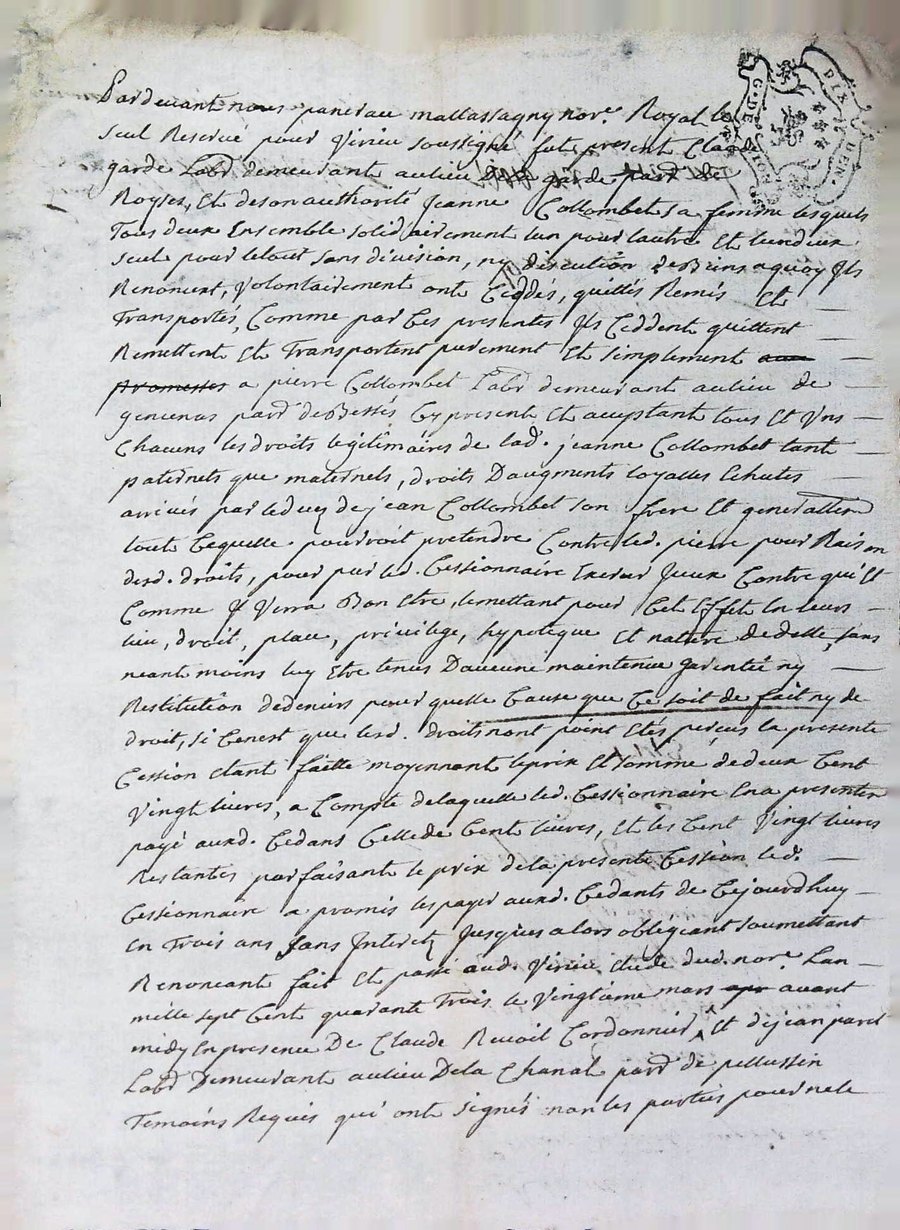 Pardevant nous pancrau mattassagny nore. Royal le
seul Reservé pour Virieu soussigné fut present Claude
garde Labr demeurant aulieu garde parr de
Royses, Et deson authorité jeanne Collombet sa femme lesquels
Tous deux Ensemble solidairement lun pour lautre Et lundeux
seul pour letout sans division, ny discution deBiens aquoy Ils
Renoncent, Volontairement ont Ceddés, quittés Remis Et
Transportés, Comme par Ces presentes Ils Ceddent quittent
Remettent Et Transportent purement Et simplement aux
promesses a pierre Collombet Labr demeurant aulieu de
parr deBessés Cy present Et acceptant tous Et Uns
Chacuns lesdroits legitimaires de lad. jeanne Collombet tant
paternels que maternels, droits Daugments loyalles Echutes
arrivés par leduez de jean Collombet son frere Et generallem
tout Cequelle pourroit pretendre Contre led. pierre pour Raison
desd. droits, pour par led. Cessionnaire Exercer Iceux Contre qui Et
Comme Il Verra Bon Etre, lemettant pour Cet Effet En leurs
lieu, droit, place, privilege, hypoteque Et nature dedette, sans
neant moins luy Etre tenus Daucune maintenue garentie ny
Restitution dedeniers pour quelle Cause que Ce soit de fait ny de
droit, si Cenest que lesd. droits nont point Etés perçus la presente
Cession Etant faitte moyennant leprix Et somme dedeux Cent
Vingt livres, a Compte delaquelle led. Cessionnaire Ena presentem
payé auxd. Cedans Cellede Cent livres, Et les Cent Vingt livres
Restantes parfaisante le prix dela presente Cession led.
Cessionnaire a promis lespayer auxd. Cedants de Cejourdhuy
En Trois ans sans Interets jusques alors obligeant soumettant
Renonceant fait Et passé aud. Virieu Etude dud. nore. Lan
mille sept Cent quarante Trois le Vingtieme mars apr avant
midy En presence De Claude Revoil Cordonnier, Et dejean parel
Labr Demeurant aulieu Dela Chanal parr de pellussin
Temoins Requis qui ont signés non les parties pour nele
G. DE
DIX DEN.